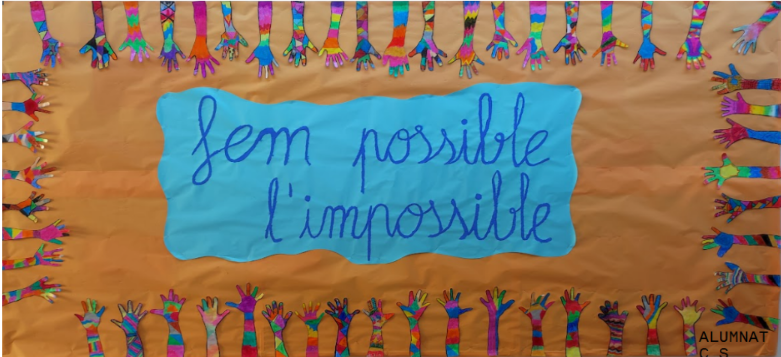 fem possible
l'impossible
ALUMNAT
C S